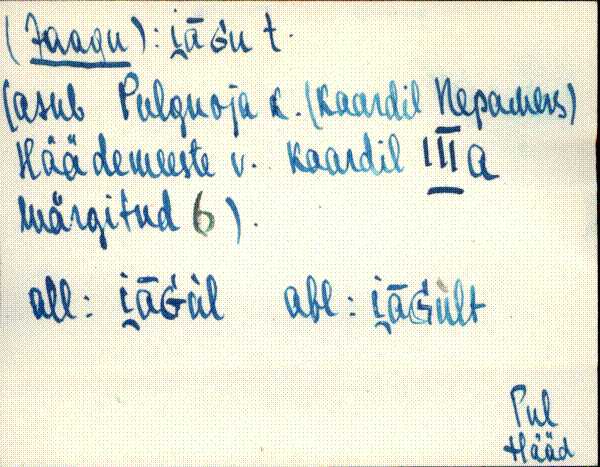 (Jaagu): i̯āGu t.
(asub Pulgnoja k. (Kaardil Nepameers)
Häädemeeste v. kaardil III a
märgitud 6).
all: i̯āGùl abl: i̯āGùlt
Pul
Hääd